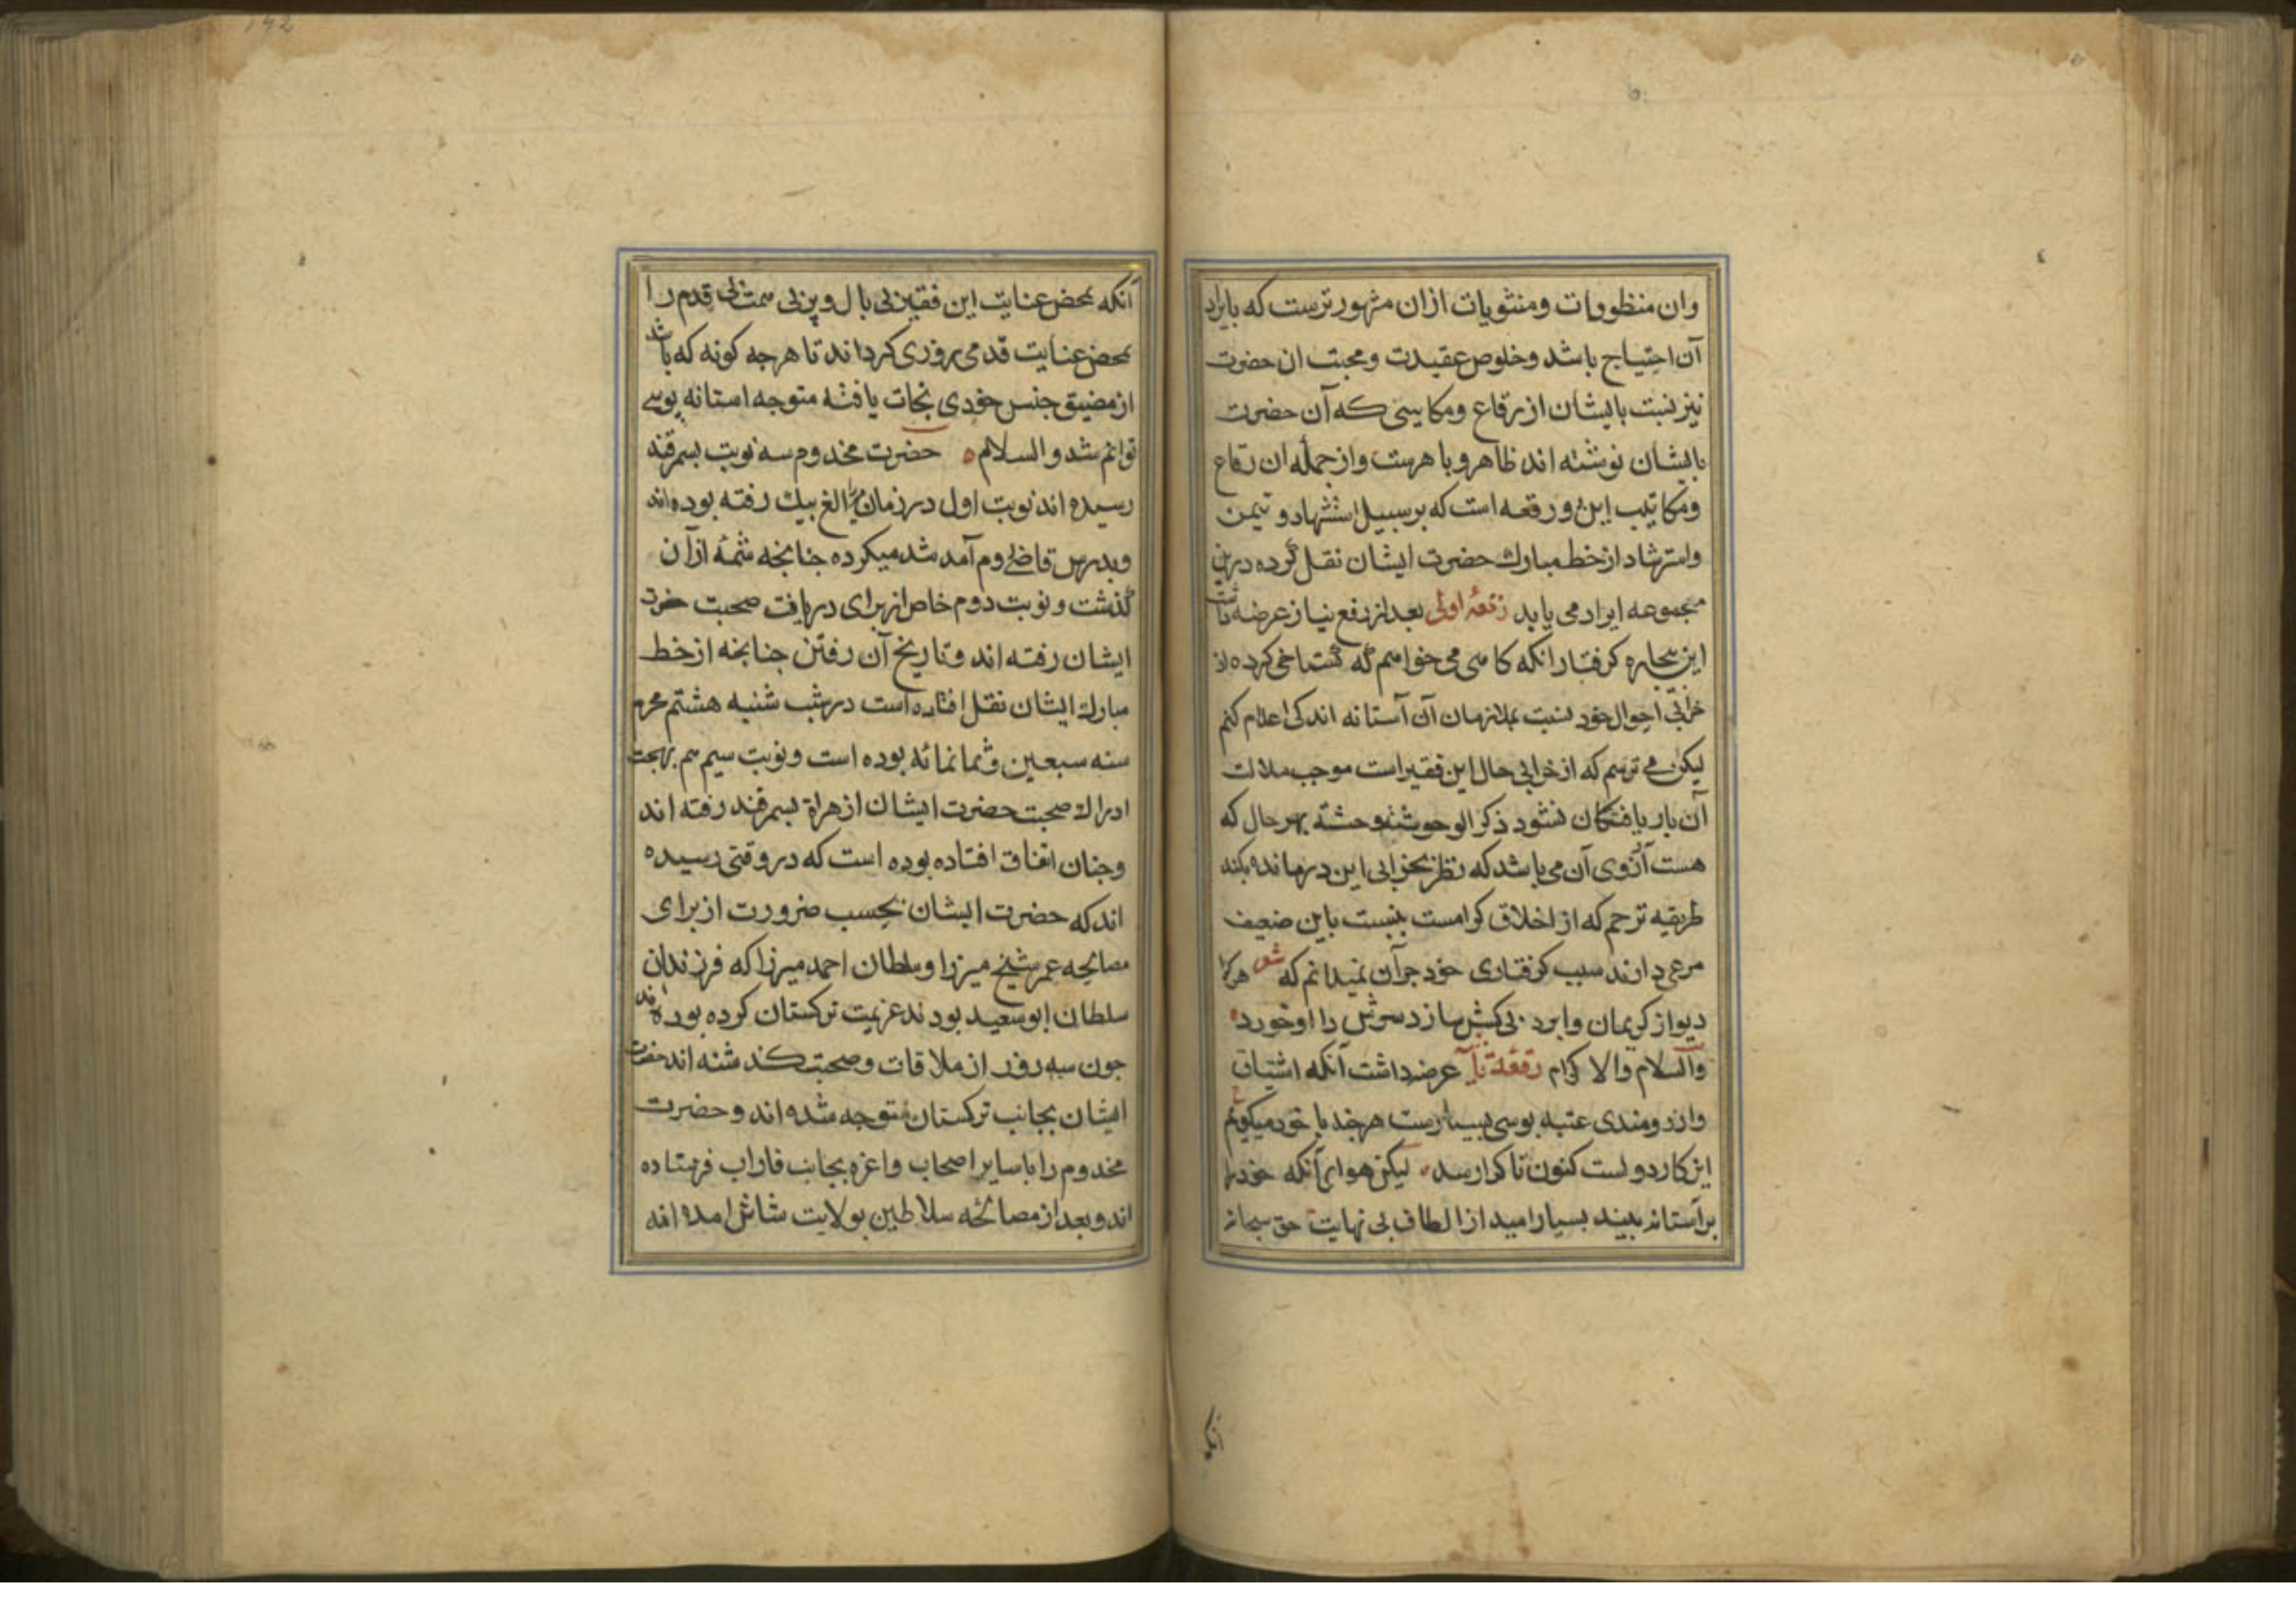 وان منظومات ومنثویات ازان مشهورترست که بایراد
آن احتیاج باشد وخلوص عقیدت ومحبت ان حضرت
نیز نسبت بایشان از رقاع ومکاتیبی که آن حضرت
بایشان نوشته اند ظاهر وباهرست واز جمله ان رقاع
ومکاتیب این دو رقعه است که بر سبیل استشهاد و تیمن
واسترشاد از خط مبارک حضرت ایشان نقل کرده درین
مجموعه ایراد می یابد رقعهٔ اولی بعد از رفع نیاز عرضه داشت
این بیچاره کرفتار انکه کاهی می خواهم که کستاخی کرده از
خرابی احوال خود نسبت بملازمان آن آستانه اندکی اعلام کنم
لیکن می ترسم که از خرابی حال این فقیر است موجب ملالت
آن بار یافتکان نشود ذکر الوحوشة وحشة بهر حال که
هست آرزوی آن می باشد که نظر بخرابی این درمانده بکنند
طریقه ترحم که از اخلاق کرامست بنسبت باین ضعیف
مرعی دارند سبب کرفتاری خود جز آن نمیدانم که شعر هر کرا
دیو از کریمان وابرد بی کسش سازد سرش را او خورد
والسلام والاکرام رقعهٔ ثانیه عرضه داشت آنکه اشتیاق
وارزومندی عتبه بوسی بسیارست هر چند با خود میکویم
این کار دولست کنون تا کرا رسد لیکن هوای آنکه خود را
بر آستانه بیند بسیار امید از الطاف بی نهایت حق سبحانه
آنکه
آنکه بمحض عنایت این فقیر بی بال وپر بی سمت بی قدم را
بمحض عنایت قدمی روزی کرداند تا هر جه کونه که باشد
از مضیق جنس خودی نجات یافته متوجه استانه بوسی
توانم شد والسلام حضرت مخدوم سه نوبت بسمرقند
رسیده اند نوبت اول در زمان میرزا الغ بیک رفته بوده اند
وبدرس قاضی روم آمد شد میکرده جنانجه شمهٔ ازان
کذشت ونوبت دوم خاص از برای دریافت صحبت حضرت
ایشان رفته اند وتاریخ آن رفتن جنانجه از خط
مبارک ایشان نقل افتاده است در شب شنبه هشتم محرم
سنه سبعین وثمانمائه بوده است ونوبت سیم هم بجهت
ادراک صحبت حضرت ایشان از هراة بسمرقند رفته اند
وجنان اتفاق افتاده بوده است که در وقتی رسیده
اند که حضرت ایشان بحسب ضرورت از برای
مصالحه عمر شیخ میرزا وسلطان احمد میرزا که فرزندان
سلطان ابو سعید بودند عزیمت ترکستان کرده بوده اند
جون سه روز از ملاقات وصحبت کذشته اند حضرت
ایشان بجانب ترکستان متوجه شده اند وحضرت
مخدوم را با سایر اصحاب واعزه بجانب فاراب فرستاده
اند وبعد از مصالحه سلاطین بولایت شاش امده اند